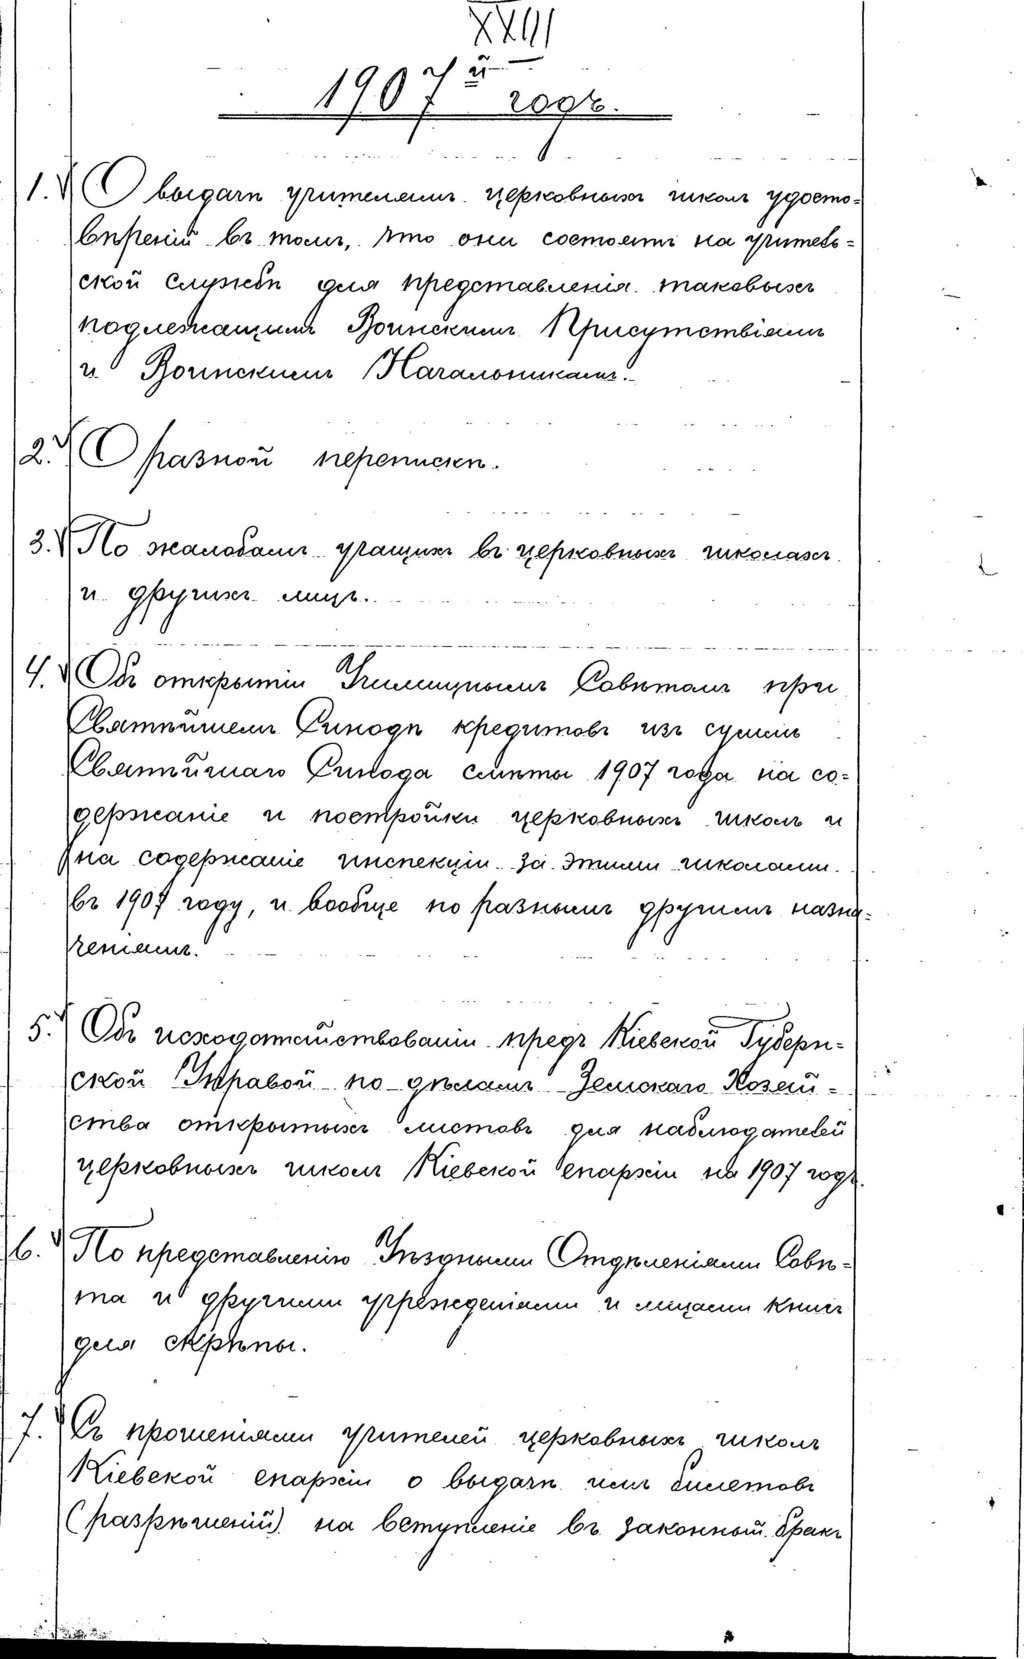 XXIII
1907й годъ.
1. О выдачѣ учителямъ церковныхъ школъ удосто=
вѣреній въ томъ, что они состоятъ на учитель=
ской службѣ для представленія таковыхъ
подлежащимъ Воинскимъ Присутствіямъ
и Воинскимъ Начальникамъ.
2. О разной перепискѣ.
3. По жалобамъ учащихъ въ церковныхъ школахъ
и другихъ лицъ.
4. Объ открытіи Училищнымъ Совѣтомъ при
Святѣйшемъ Синодѣ кредитовъ изъ суммъ
Святѣйшаго Синода смѣты 1907 года на со=
держаніе и постройки церковныхъ школъ и
на содержаніе инспекціи за этими школами
въ 1907 году, и вообще по разнымъ другимъ назна=
ченіямъ.
5. Объ исходатайствованіи предъ Кіевской Губерн=
ской Управой по дѣламъ Земскаго Хозяй=
ства открытыхъ листовъ для наблюдателей
церковныхъ школъ Кіевской епархіи на 1907 годъ.
6. По представленію Уѣздными Отдѣленіями Совѣ=
та и другими учрежденіями и лицами книгъ
для скрѣпы.
7. Съ прошеніями учителей церковныхъ школъ
Кіевской епархіи о выдачѣ имъ билетовъ
(разрѣшеній) на вступленіе въ законный бракъ